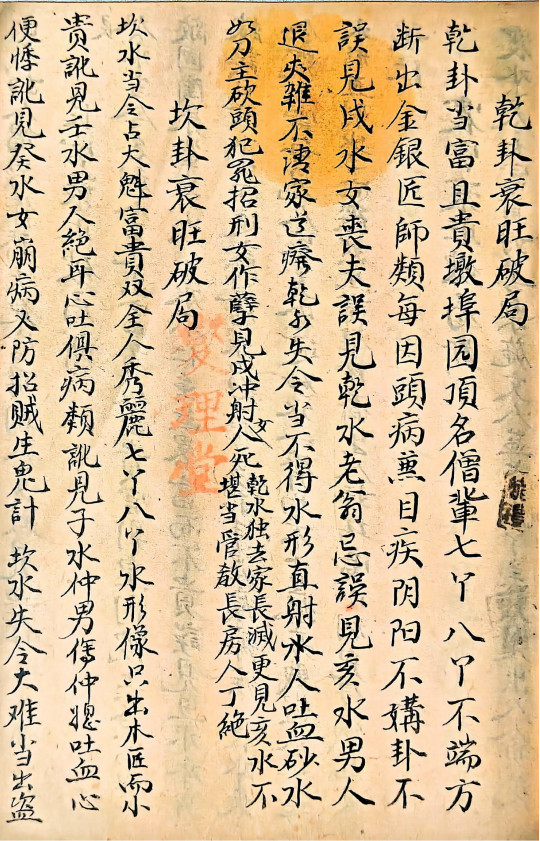 乾卦衰旺破局
乾卦当富且貴墩埠园頂名僧輩七丫八丫不端方
断出金銀匠師類每因頭病蕉目疾阴阳不媾卦不
誤見戌水女喪夫誤見乾水老翁忌誤見亥水男人
退夾雜不清家道癈乾水失令当不得水形直射水人吐血砂水
如刀主砍頭犯罪招刑女作孽見戌冲射女人死乾水独去家長滅更見亥水不
堪当管教長房人丁絶
坎卦衰旺破局
坎水当令占大魁富貴双全人秀麗七丫八丫水形像只出木匠而小
貴訛見壬水男人絶耳心吐俱病類訛見子水仲男傷仲媳吐血心
便悸訛見癸水女崩病又防招賊生鬼計 坎水失令大难当出盗
燮理堂